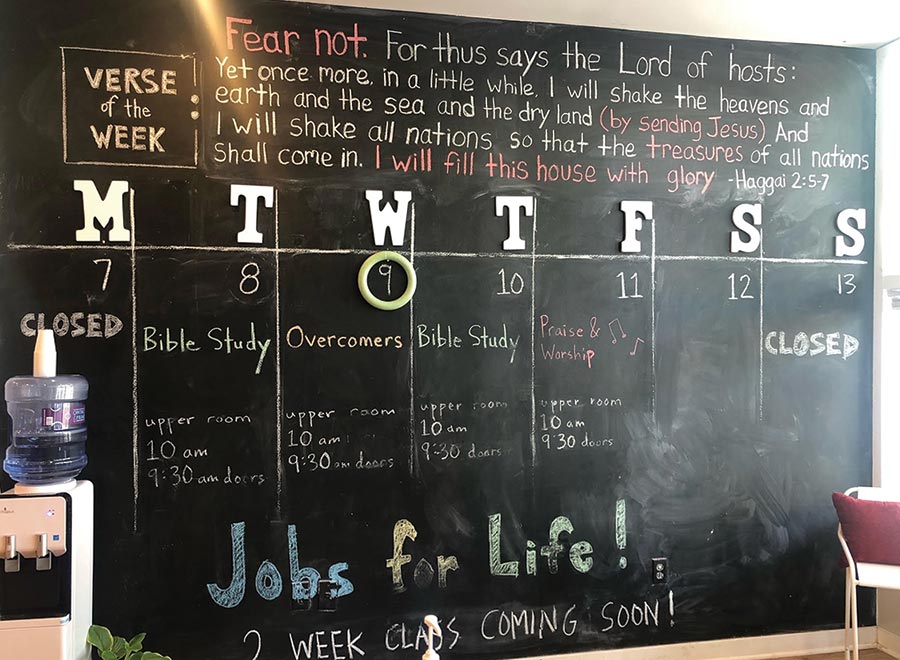 VERSE
of the
WEEK
Fear not: For thus says the Lord of hosts:
Yet once more, in a little while, I will shake the heavens and
earth and the sea and the dry land (by sending Jesus) And
I will shake all nations, so that the treasures of all nations
shall come in. I will fill this house with glory -Haggai 2:5-7
M T W T F S S
7 8 9 10 11 12 13
CLOSED
Bible Study
Overcomers
Bible Study
Praise &
Worship
CLOSED
upper room
10 am
9:30 am doors
upper room
10 am
9:30 am doors
upper room
10 am
9:30 doors
upper room
10 am
9:30 doors
Jobs for Life!
2 WEEK CLASS COMING SOON!